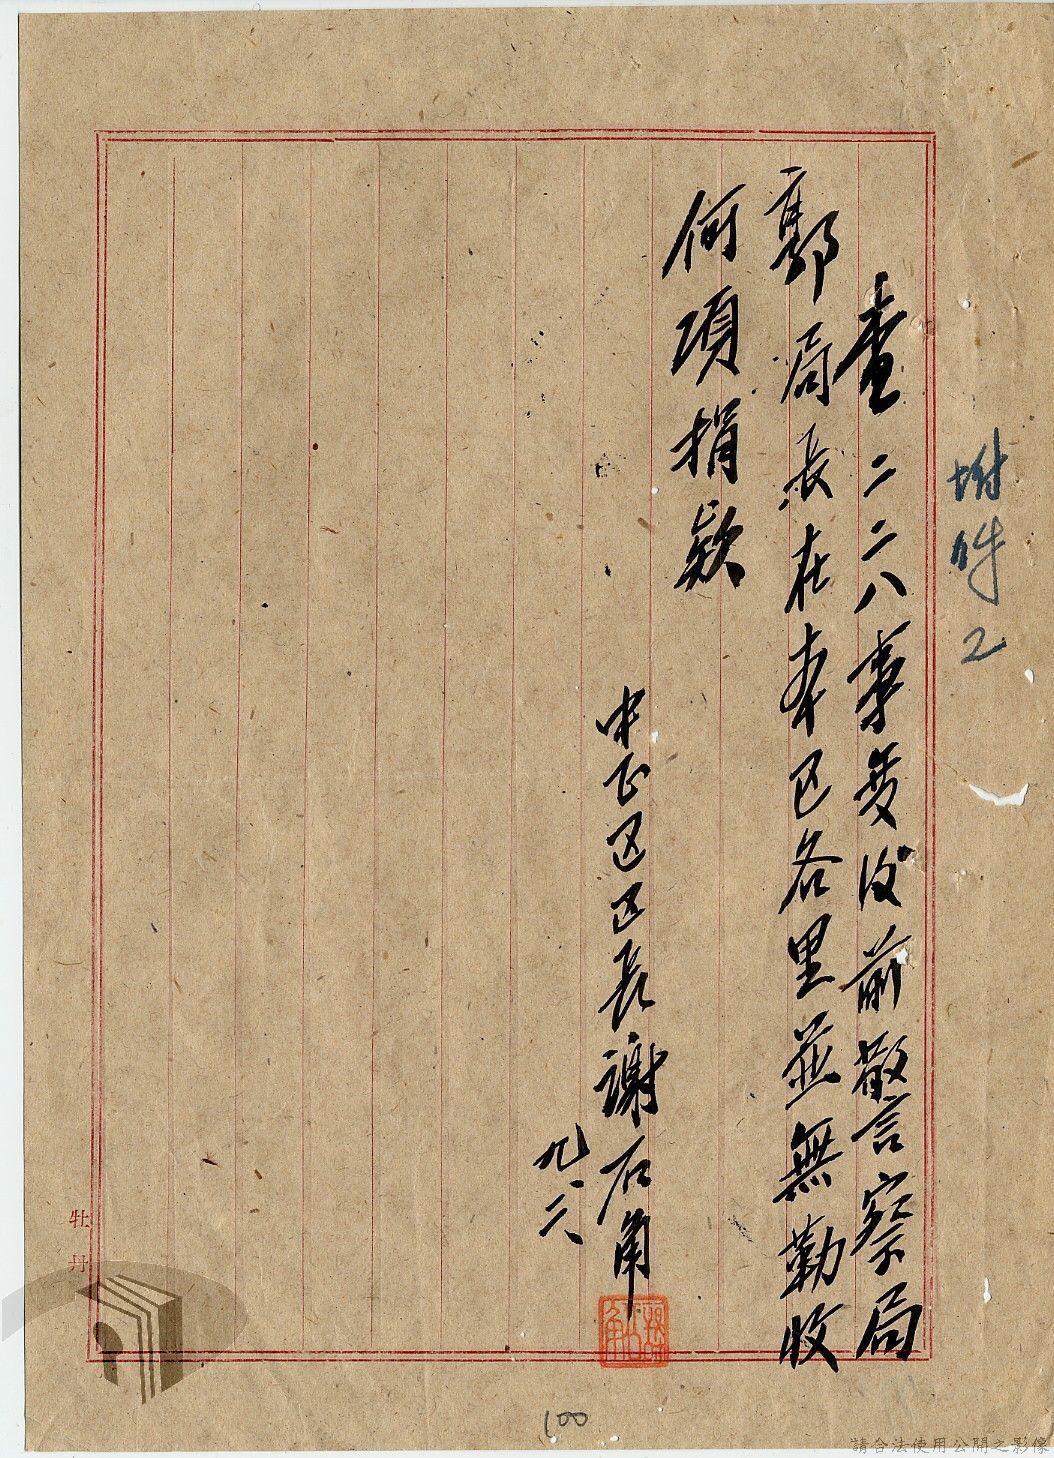 附件2
查二二八事变後前警察局
郭局長在本区各里並無勸收
何項捐款
中正区区長謝石角
九、六
謝石角
牡丹
100
請合法使用公開之影像